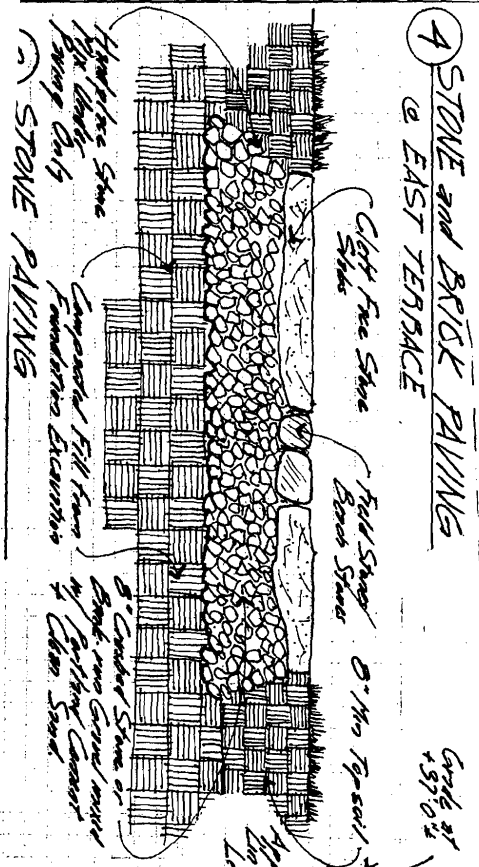 4 STONE and BRICK PAVING
@ EAST TERRACE
Grade at
+37.0 ±
Cleft Face Stone
Slabs
Field Stones/
Beach Stones
8" Min Topsoil
Stone
Mix Under
Paving Only
Compacted Fill from
Foundation Excavation
8" Crushed Stone or
Bank-run Gravel mixed
w/ Portland Cement
+ Clean Sand
STONE PAVING